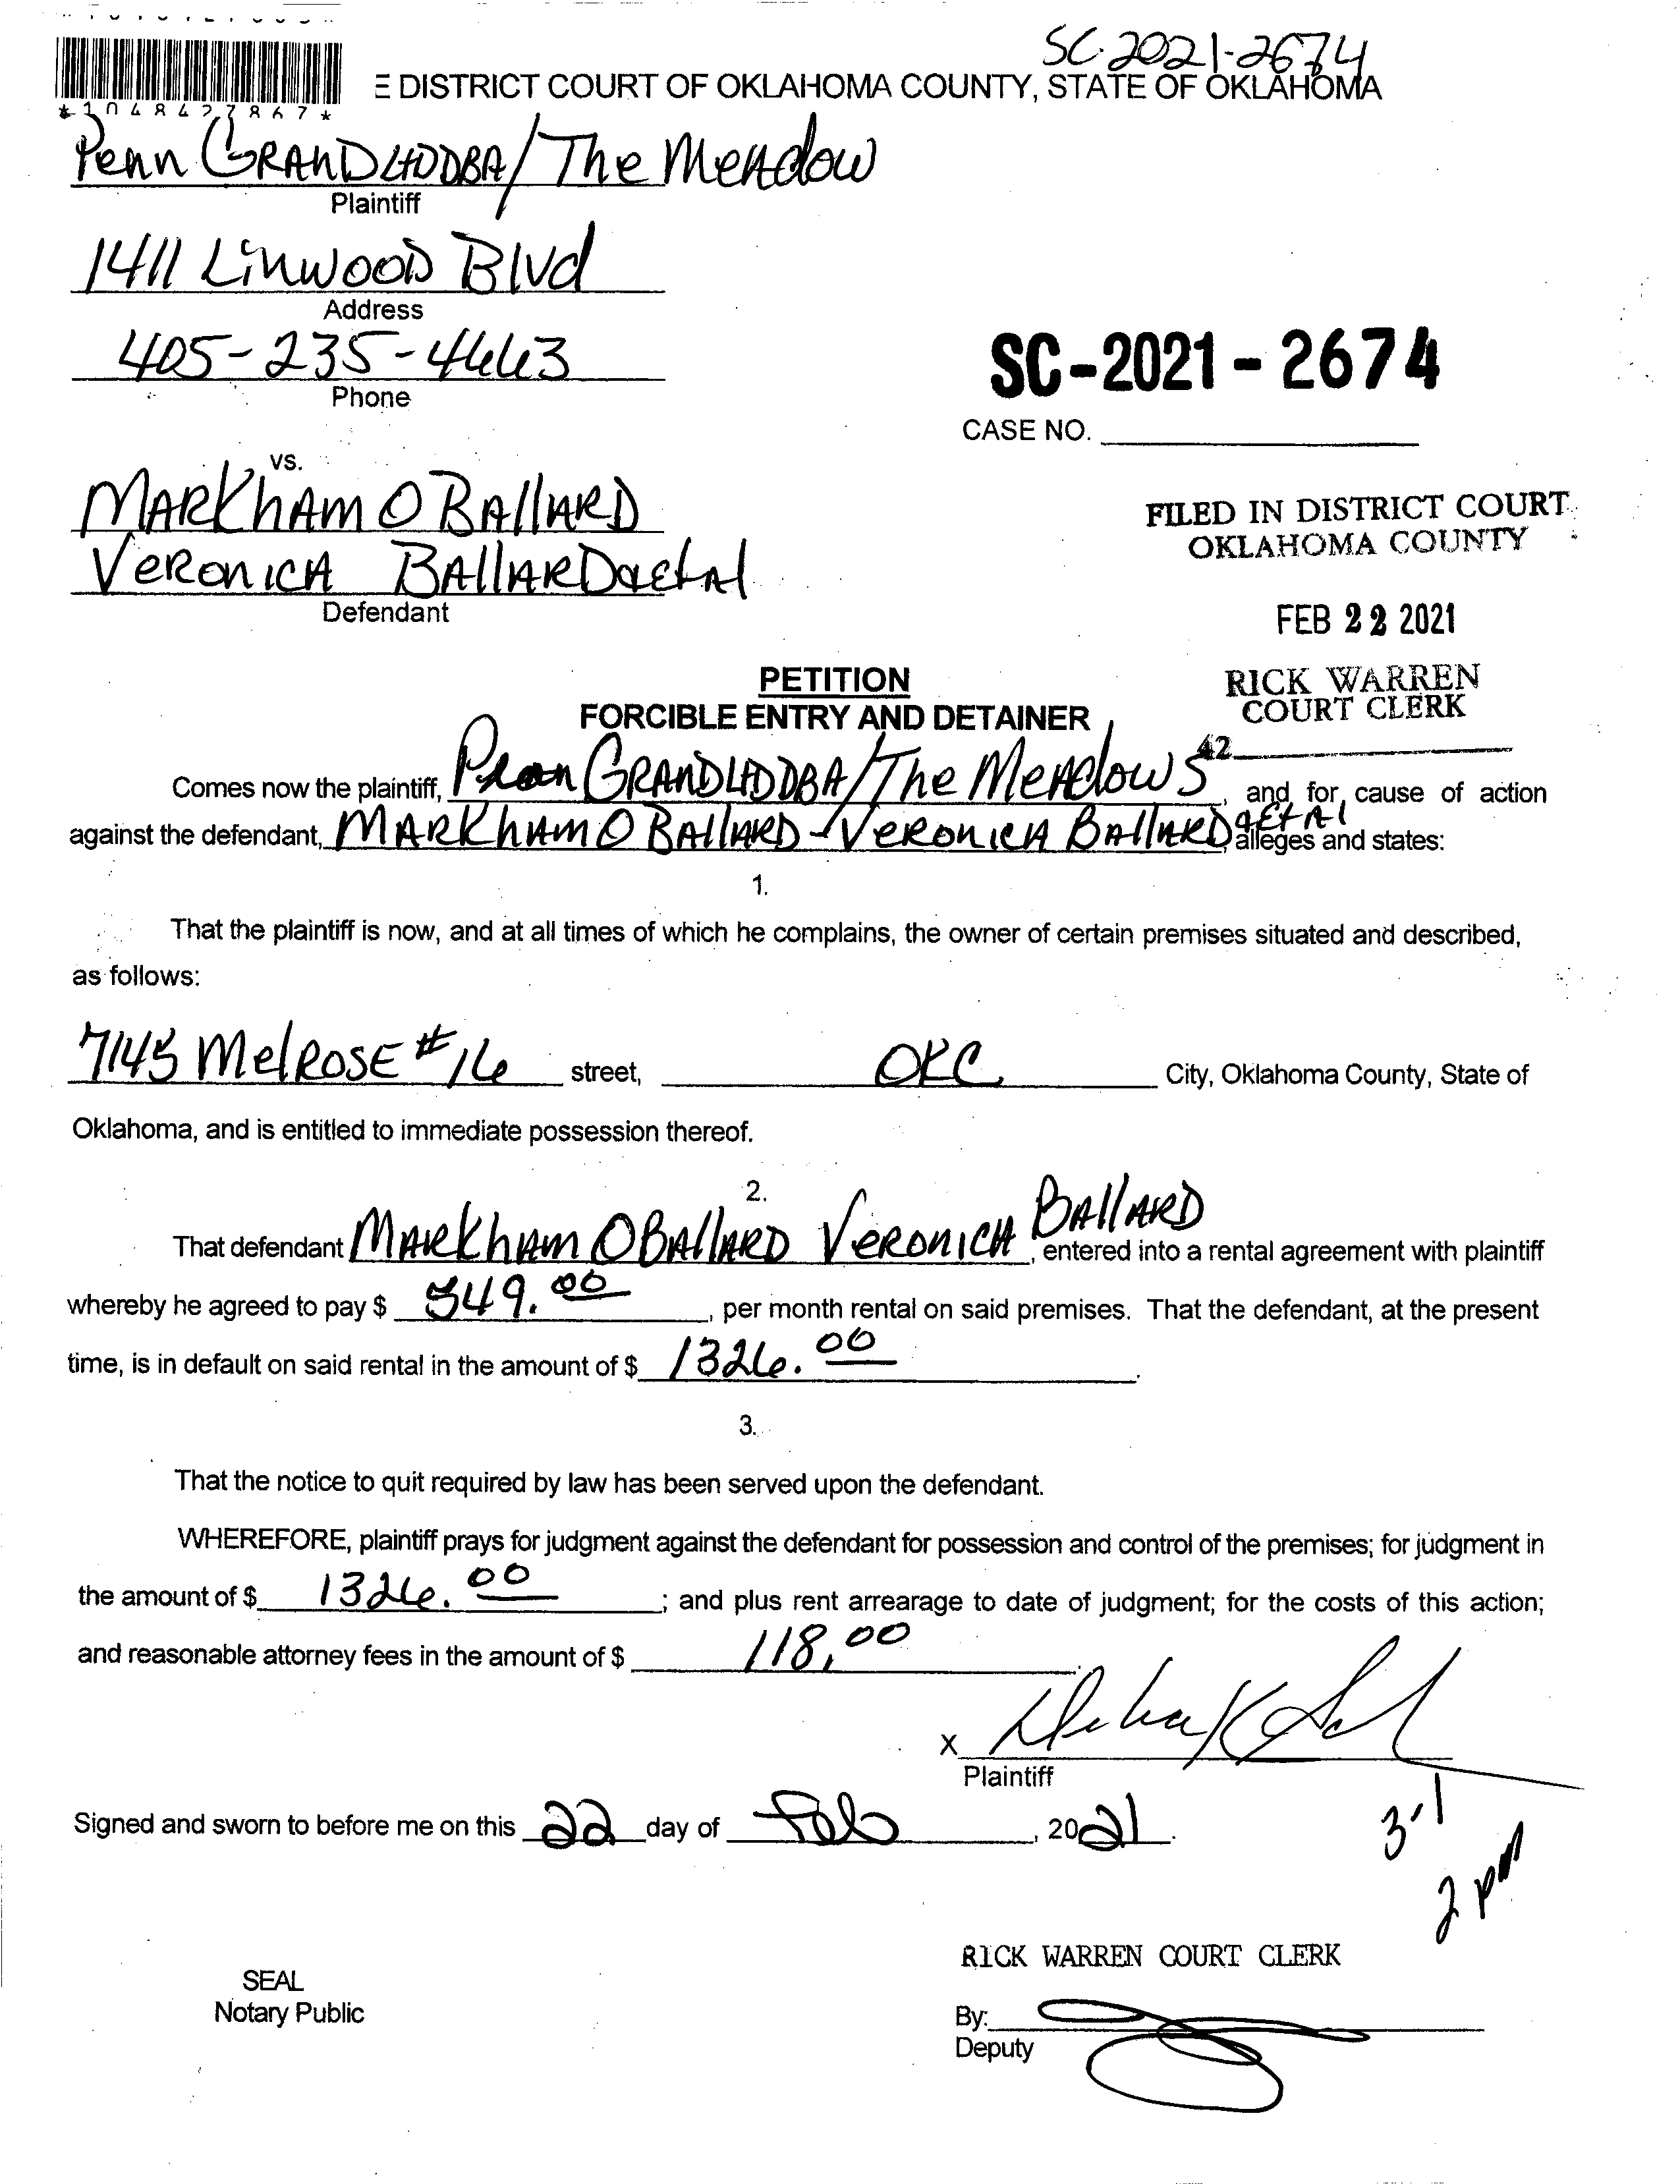 SC-2021-2674
E DISTRICT COURT OF OKLAHOMA COUNTY, STATE OF OKLAHOMA
*1048427867*
Penn GRANDLTDDBA/The Meadow
Plaintiff
1411 LinwooD Blvd
Address
405-235-4663
Phone
SC-2021-2674
CASE NO.
vs.
MARKhAM O BAllARD
VeRonicA BAllARD aetAl
Defendant
FILED IN DISTRICT COURT
OKLAHOMA COUNTY
FEB 22 2021
RICK WARREN
COURT CLERK
42
PETITION
FORCIBLE ENTRY AND DETAINER
Comes now the plaintiff, Penn GRANDLTDDBA/The MeAdowS, and for cause of action
against the defendant, MARKhAM O BAllARD - VeRonicA BAllARD aetAl alleges and states:
1.
That the plaintiff is now, and at all times of which he complains, the owner of certain premises situated and described,
as follows:
7145 MelRosE #16 street, OKC City, Oklahoma County, State of
Oklahoma, and is entitled to immediate possession thereof.
2.
That defendant MARkham O BAllARD VeRonicA BAllARD, entered into a rental agreement with plaintiff
whereby he agreed to pay $ 549.00, per month rental on said premises. That the defendant, at the present
time, is in default on said rental in the amount of $ 1326.00.
3.
That the notice to quit required by law has been served upon the defendant.
WHEREFORE, plaintiff prays for judgment against the defendant for possession and control of the premises; for judgment in
the amount of $ 1326.00; and plus rent arrearage to date of judgment; for the costs of this action;
and reasonable attorney fees in the amount of $ 118,00.
X
Plaintiff
Signed and sworn to before me on this 22 day of Feb, 2021.
3-1
2 pm
RICK WARREN COURT CLERK
SEAL
Notary Public
By:
Deputy